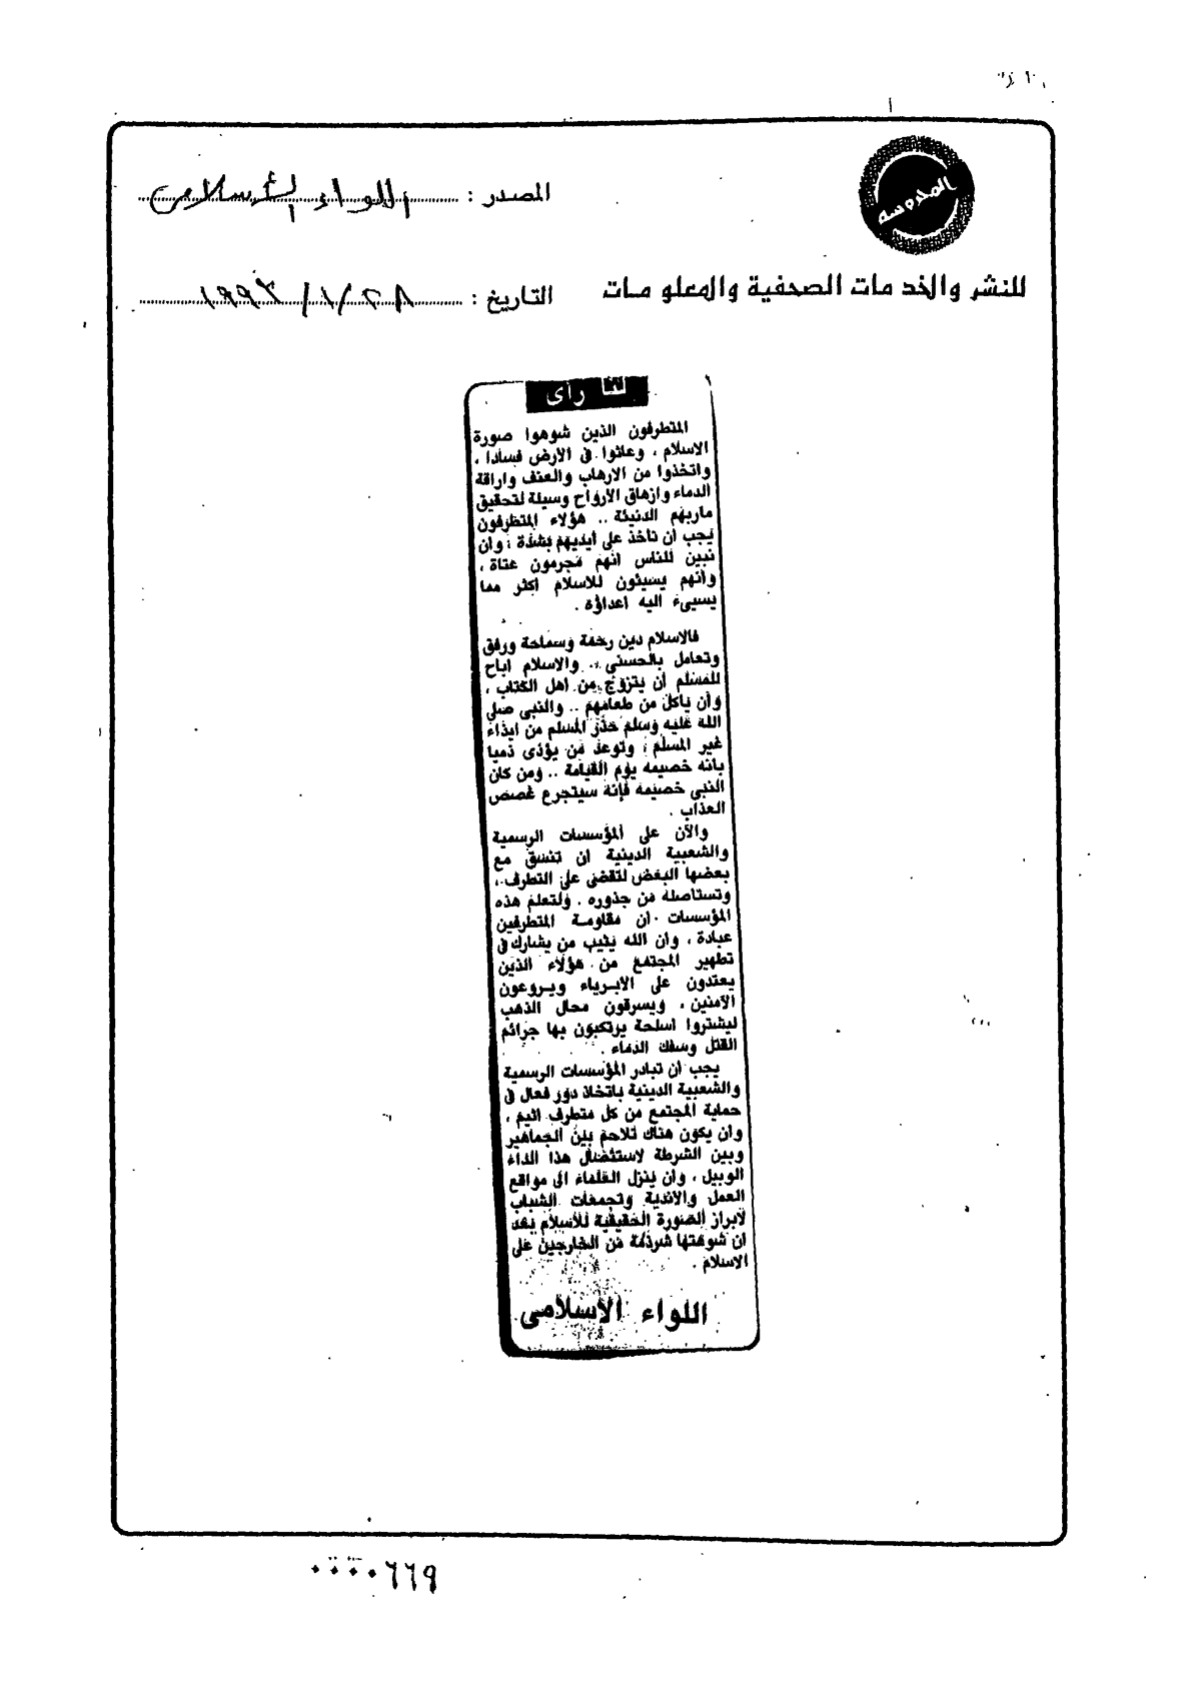 المحروسه
المصدر : اللواء الإسلامى
للنشر والخدمات الصحفية والمعلومات
التاريخ : ٢٨ / ١ / ١٩٩٣
لنا رأى
المتطرفون الذين شوهوا صورة
الاسلام ، وعاثوا فى الأرض فسادا ،
واتخذوا من الارهاب والعنف واراقة
الدماء وازهاق الأرواح وسيلة لتحقيق
ماربهم الدنيئة .. هؤلاء المتطرفون
يجب ان ناخذ على ايديهم بشدة ، وان
نبين للناس انهم مجرمون عتاة ،
وانهم يسيئون للاسلام اكثر مما
يسيىء اليه اعداؤه .
فالاسلام دين رحمة وسماحة ورفق
وتعامل بالحسنى .. والاسلام اباح
للمسلم ان يتزوج من اهل الكتاب ،
وأن ياكل من طعامهم .. والنبى صلى
الله عليه وسلم حذر المسلم من ايذاء
غير المسلم ، وتوعد من يؤذى ذميا
بانه خصيمه يوم القيامة .. ومن كان
النبى خصيمه فإنه سيتجرع غصص
العذاب .
والآن على المؤسسات الرسمية
والشعبية الدينية ان تنسق مع
بعضها البعض لتقضى على التطرف ،
وتستاصله من جذوره . ولتعلم هذه
المؤسسات ان مقاومة المتطرفين
عبادة ، وان الله يثيب من يشارك فى
تطهير المجتمع من هؤلاء الذين
يعتدون على الابرياء ويروعون
الآمنين ، ويسرقون محال الذهب
ليشتروا اسلحة يرتكبون بها جرائم
القتل وسفك الدماء .
يجب ان تبادر المؤسسات الرسمية
والشعبية الدينية باتخاذ دور فعال فى
حماية المجتمع من كل متطرف اثيم ،
وان يكون هناك تلاحم بين الجماهير
وبين الشرطة لاستئصال هذا الداء
الوبيل ، وان ينزل العلماء الى مواقع
العمل والاندية وتجمعات الشباب
لابراز الصورة الحقيقية للاسلام بعد
ان شوهتها شرذمة من الخارجين على
الاسلام .
اللواء الإسلامى
٠٠٠٠٦٦٩